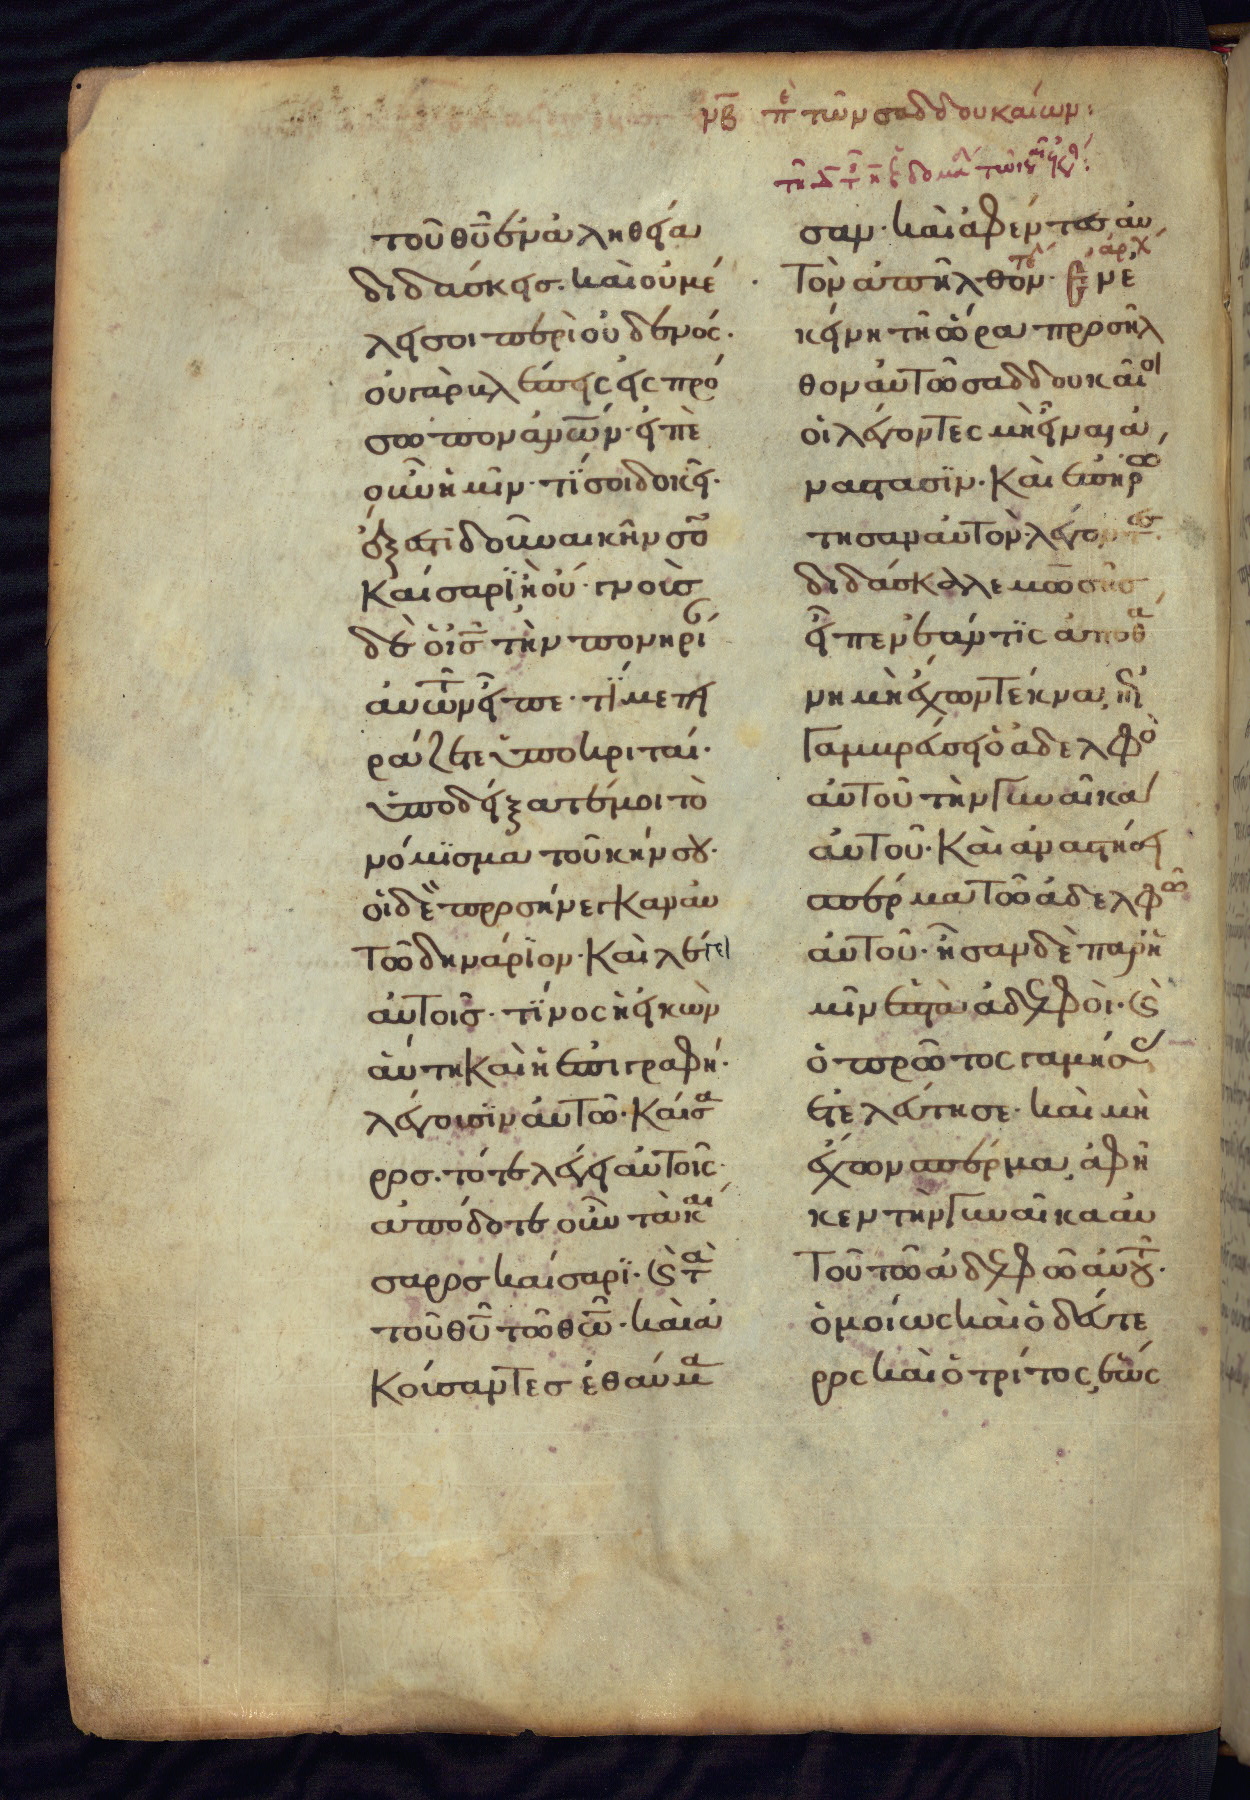 μβ πε τῶν σαδδουκαίων:
τοῦ θυ ἐν ἀληθεία
διδάσκεις. καὶ οὐ μέ
λει σοι περὶ οὐδενός.
οὐ γὰρ βλέπεις εἰς πρό
σωπον ἀνων· εἰπὲ
οὖν ἡμῖν· τί σοι δοκεῖ·
ἔξεστι δοῦναι κῆνσον
καίσαρϊ ἢ οὔ· γνοὺς
δὲ ὁ ις τὴν πονηρί
αὐτῶν εἶπε· τί με πει
ράζετε ὑποκριταί·
ὑποδείξατέ μοι τὸ
νόμϊσμα τοῦ κήνσου·
οἱ δὲ προσήνεγκαν αὐ
τῶ δηνάρϊον· καὶ λέγει
αὐτοῖς· τίνος ἡ εἰκὼν
αὕτη καὶ ἡ ἐπιγραφή·
λέγουσϊν αὐτῶ· καίσα
ρος. τότε λέγει αὐτοῖς·
ἀπόδοτε οὖν τὰ καί
σαρος καίσαρϊ· καὶ τὰ
τοῦ θυ τῶ θω· καὶ ἀ
κούσαντες ἐθαύμα
σαν· καὶ ἀφέντες αὐ
τὸν ἀπῆλθον· τελ ἀρχ ἐν ἐ
κείνη τῆ ὥρα προσῆλ
θον αὐτῶ σαδδουκαῖοι
οἱ λέγοντες μὴ εἶναι ἀ
νάστασϊν· καὶ ἐπηρώ
τησαν αὐτὸν λέγοντες·
διδάσκαλε μωσῆς
εἶπεν ἐάν τις ἀποθά
νη μὴ ἔχων τέκνα, ἐπι
γαμβρεύσει ὁ ἀδελφὸς
αὐτοῦ τὴν γυναῖκα
αὐτοῦ· καὶ ἀναστήσει
σπέρμα τῶ ἀδελφῶ
αὐτοῦ· ἦσαν δὲ παρ' ἡ
μῖν ἑπτὰ ἀδελφοὶ· καὶ
ὁ πρῶτος γαμήσας
ἐτελεύτησε· καὶ μὴ
ἔχων σπέρμα, ἀφῆ
κεν τὴν γυναῖκα αὐ
τοῦ τῶ ἀδελφῶ αὐτοῦ·
ὁμοίως καὶ ὁ δεύτε
ρος καὶ ὁ τρίτος, ἕως